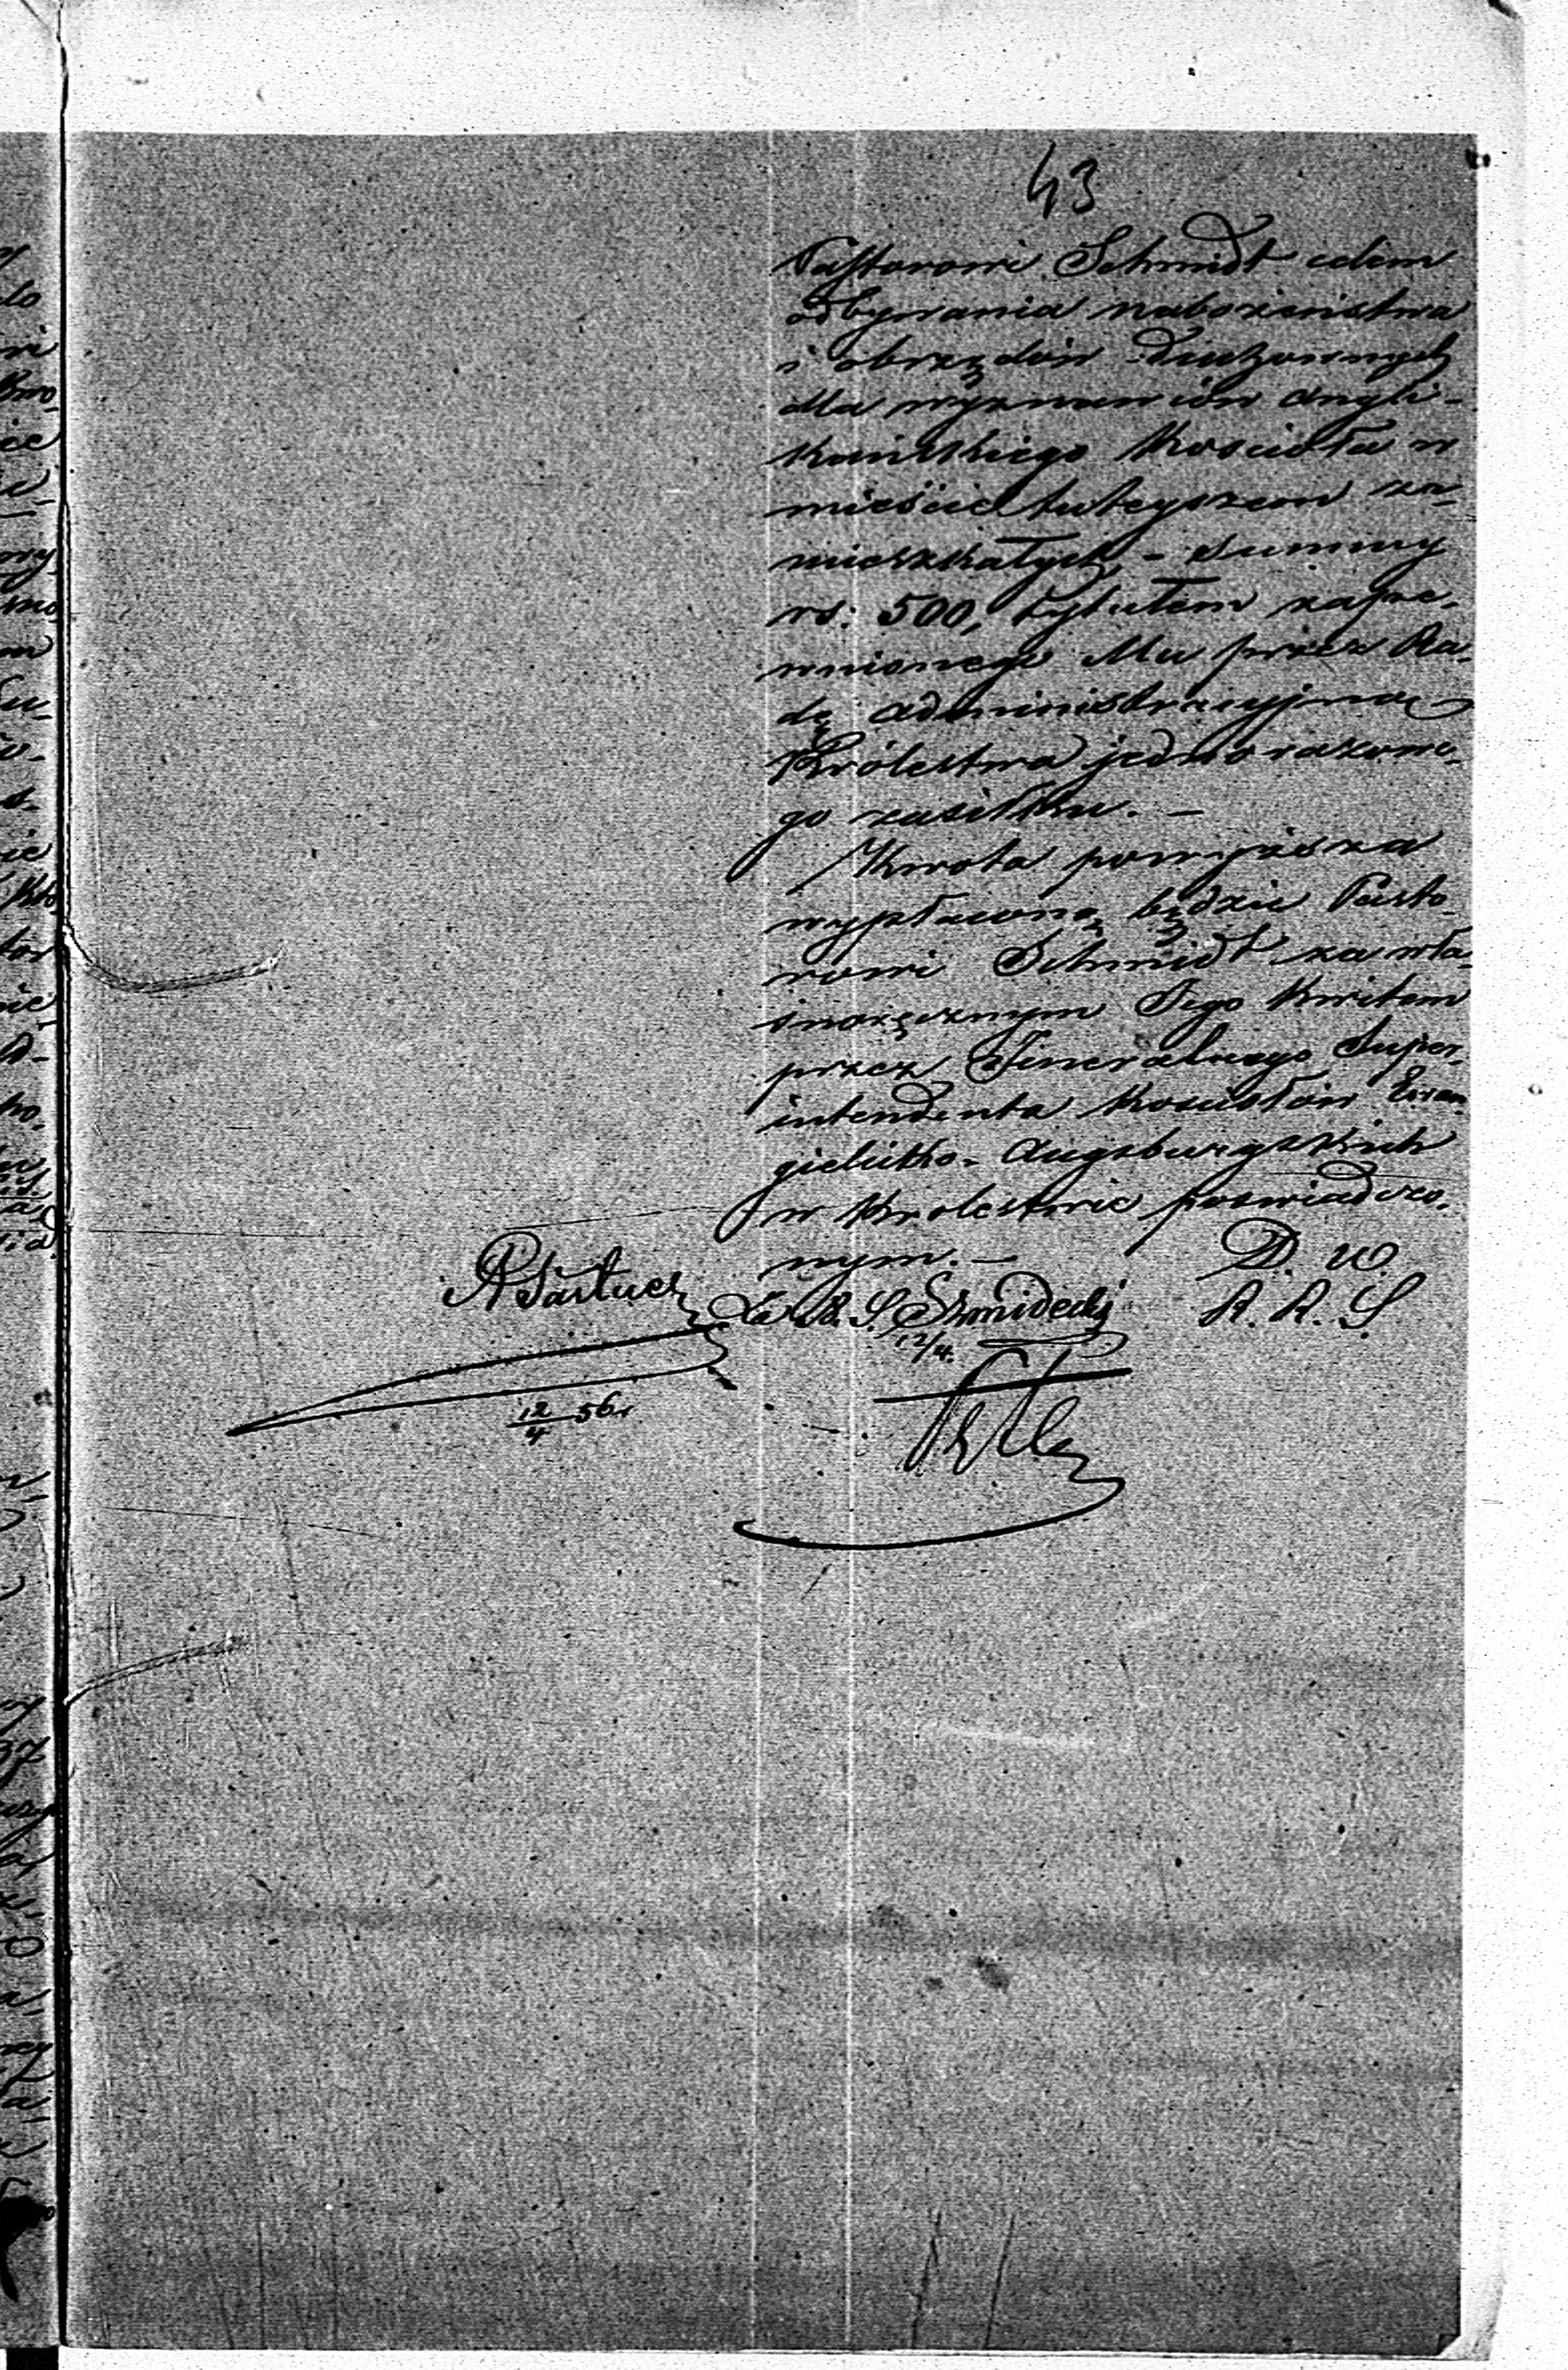 43
Pastorowi Schmidt celem
odbywania nabożeństwa
i obrzędów duchownych
dla wyznawców Angli-
kańskiego Kościoła w
mieście tuteyszem za-
mieszkałych, - summy
rs: 500, tytułem zape-
wnionego Mu przez Ra-
dę Administracyjną
Królestwa jednorazowe-
go zasiłku. -
Kwota powyższa
wypłaconą będzie Pasto-
rowi Schmidt za wła-
snoręcznym Jego kwitem
przez Jeneralnego Super-
intendenta Kościołów Ewan-
gielicko-Augsburgskich
w Królestwie poświadczo-
nym. -
D. W.
R. R. S.
Za N. S. Szmidecki
12/4.
12/4 56r